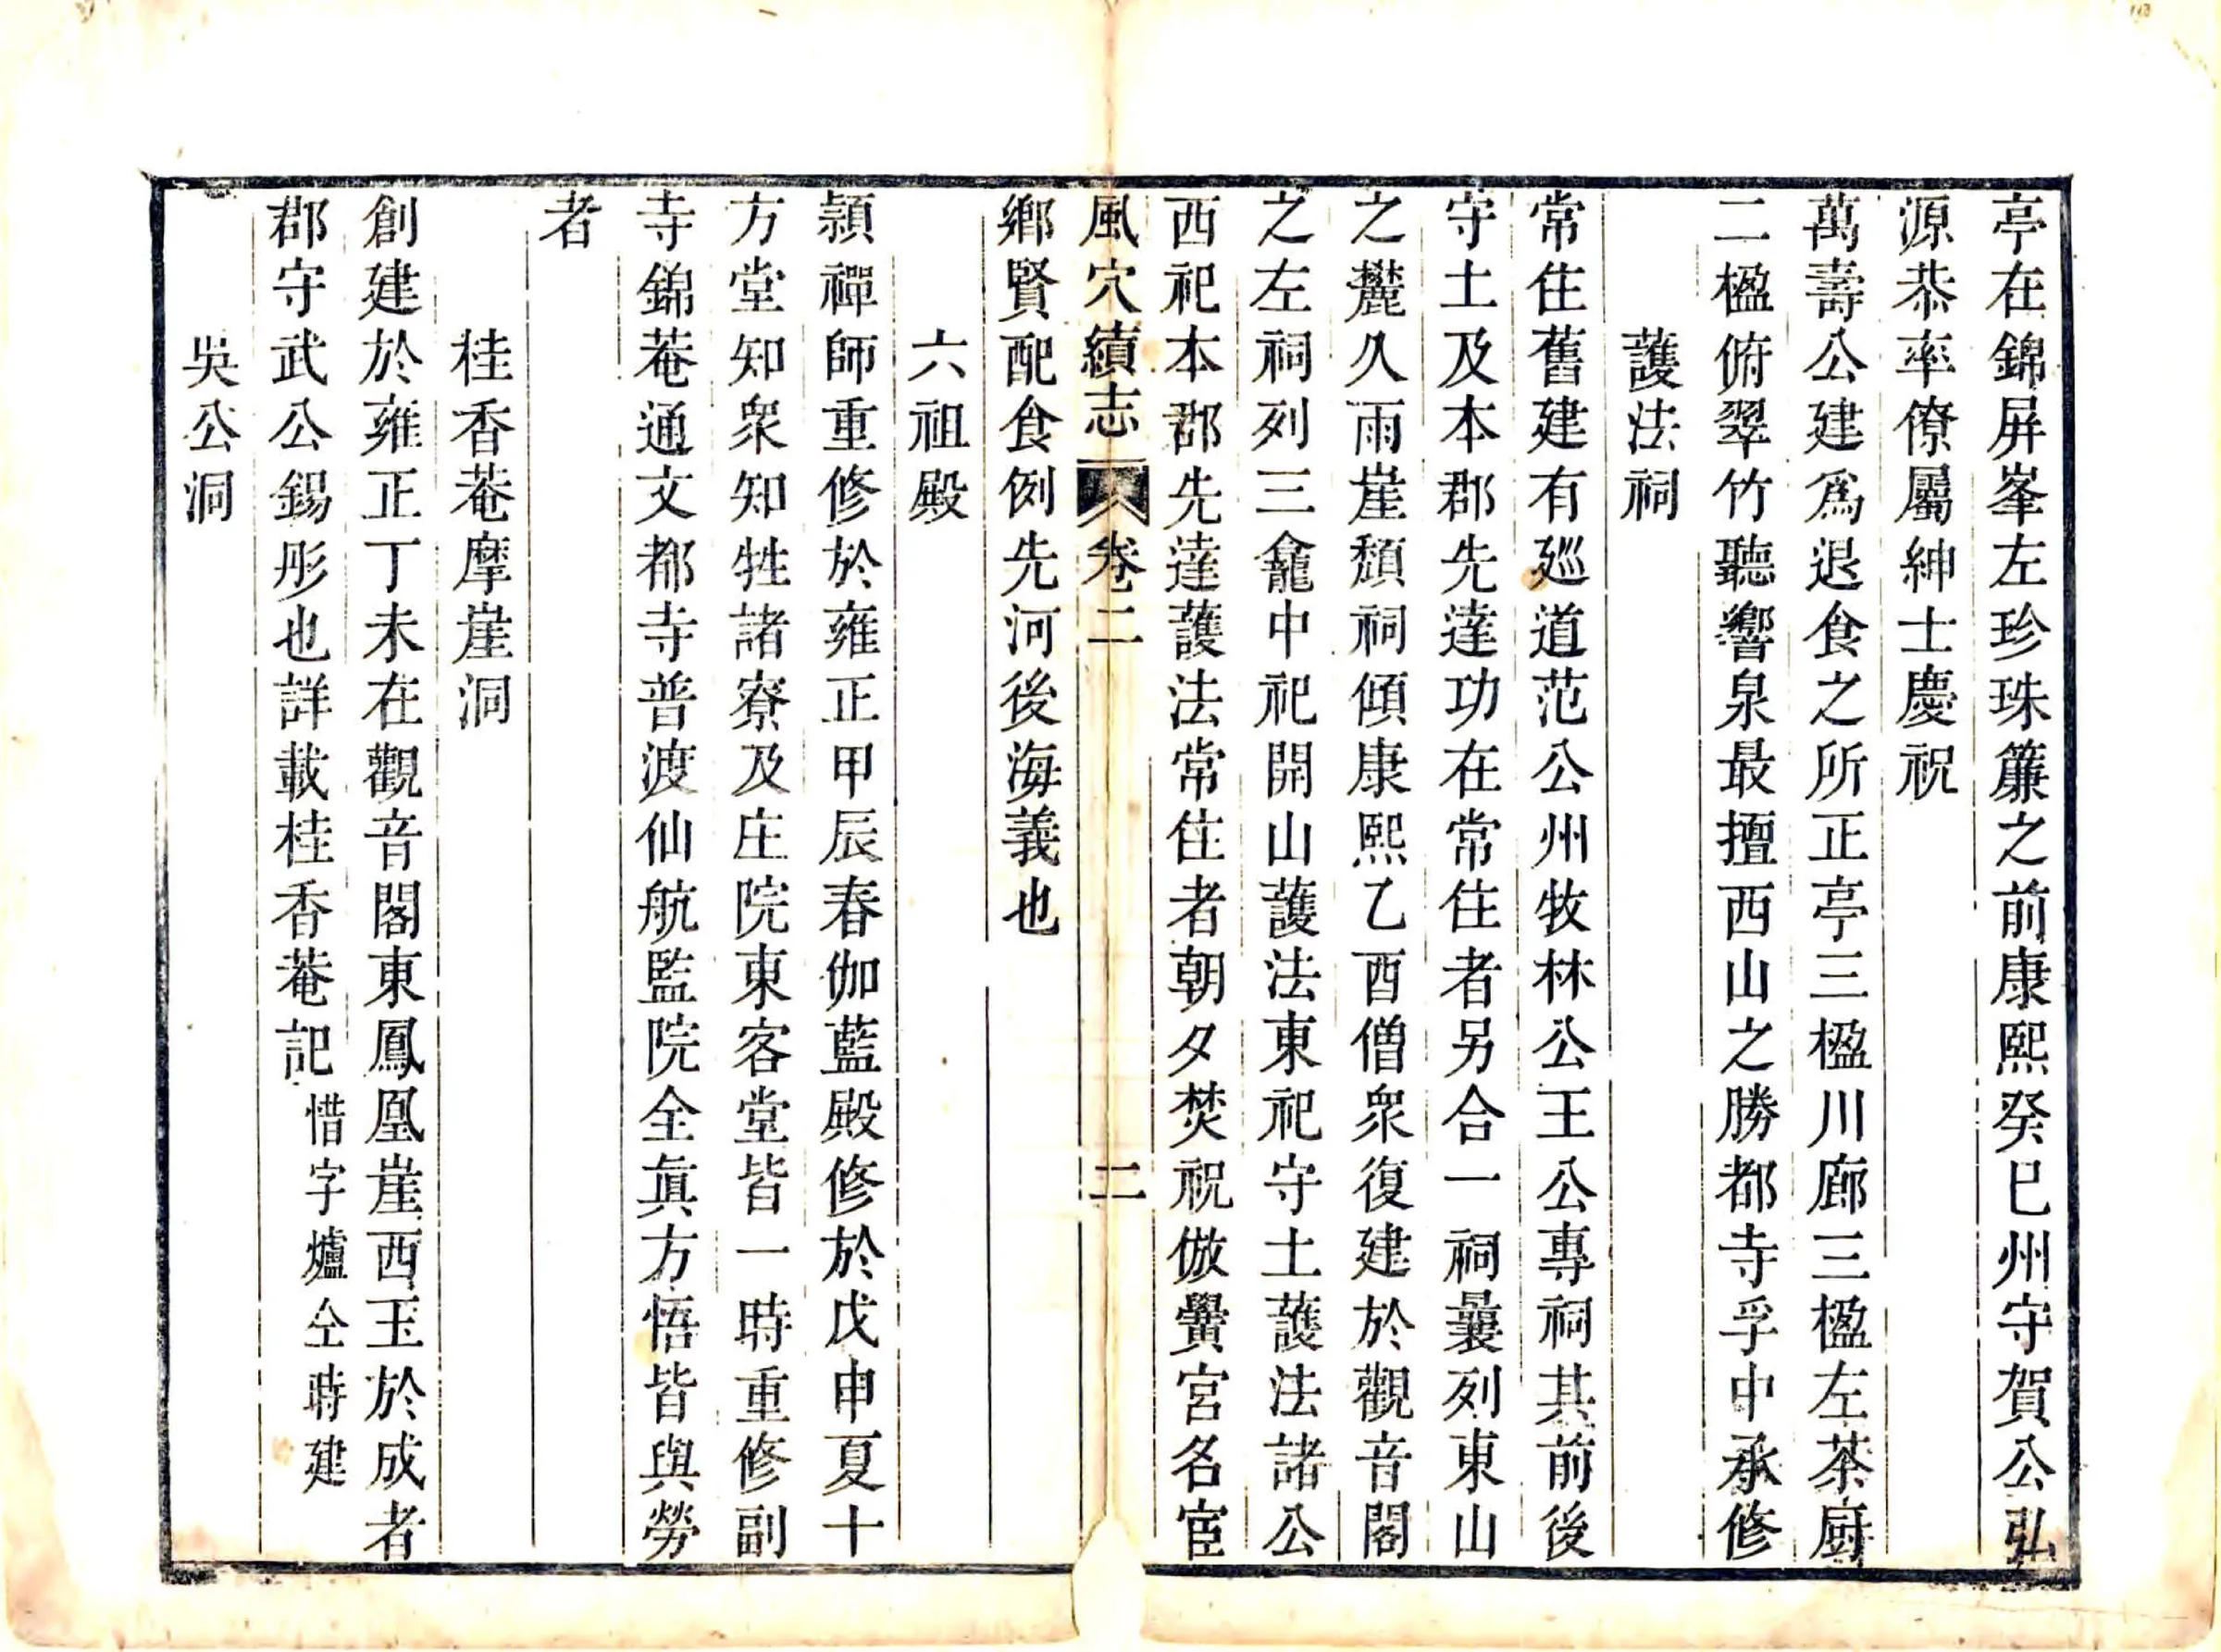 亭在錦屏峯左珍珠簾之前康熙癸巳州守賀公弘
源恭率僚屬紳士慶祝
萬壽公建爲退食之所正亭三楹川廊三楹左茶廚
二楹俯翠竹聽響泉最擅西山之勝都寺孚中承修
護法祠
常住舊建有廵道范公州牧林公王公專祠其前後
守土及本郡先達功在常住者另合一祠曩列東山
之麓久雨崖頽祠傾康熙乙酉僧衆復建於觀音閣
之左祠列三龕中祀開山護法東祀守土護法諸公
西祀本郡先達護法常住者朝夕焚祝倣黌宮名宦
風穴續志 卷二 二
鄉賢配食例先河後海義也
六祖殿
頴禪師重修於雍正甲辰春伽藍殿修於戊申夏十
方堂知衆知牲諸寮及庄院東客堂皆一時重修副
寺錦菴通文都寺普渡仙航監院全眞方悟皆與勞
者
桂香菴摩崖洞
創建於雍正丁未在觀音閣東鳳凰崖西玉於成者
郡守武公錫彤也詳載桂香菴記惜字爐仝時建
吳公洞